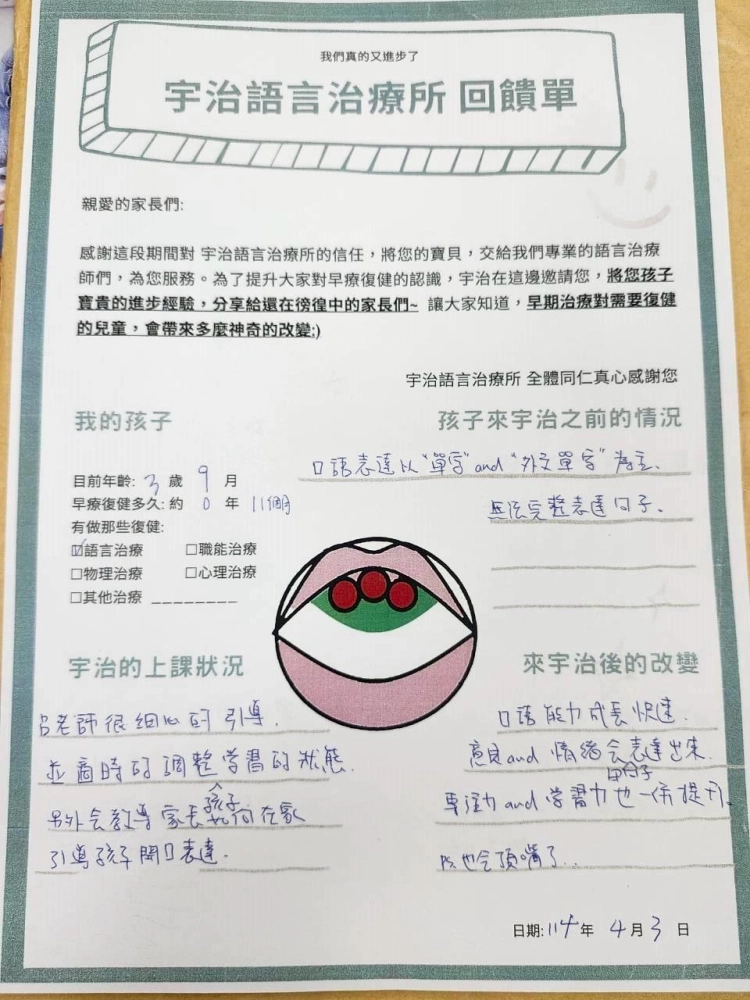 我們真的又進步了
宇治語言治療所 回饋單
親愛的家長們:
感謝這段期間對 宇治語言治療所的信任，將您的寶貝，交給我們專業的語言治療
師們，為您服務。為了提升大家對早療復健的認識，宇治在這邊邀請您，將您孩子
寶貴的進步經驗，分享給還在徬徨中的家長們~ 讓大家知道，早期治療對需要復健
的兒童，會帶來多麼神奇的改變:)
宇治語言治療所 全體同仁真心感謝您
我的孩子
目前年齡: 3 歲 9 月
早療復健多久: 約 0 年 11個月
有做那些復健:
☑語言治療 □職能治療
□物理治療 □心理治療
□其他治療 ________
孩子來宇治之前的情況
口語表達以"單字" and "外文單字"為主.
無法完整表達句子.
宇治的上課狀況
呂老師很細心的引導.
並適時的調整學習的狀態.
孩子
另外会教導家長如何在家
引導孩子開口表達.
來宇治後的改變
口語能力成長快速.
意見and 情緒会表達出來.
專注力and 学習力也一併提升.
也会頂嘴了..
日期:114年 4月3 日